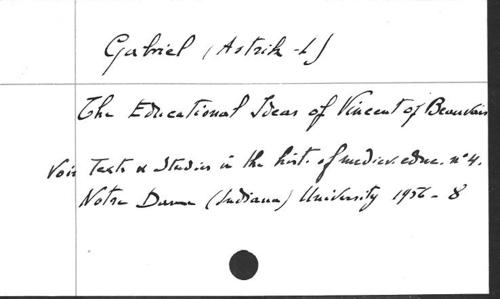 Gabriel (Astrik - L)
The Educational Ideas of Vincent of Beauvais
Voir Texts & Studies in the hist. of mediev. educ. n° 4.
Notre Dame (Indiana) University 1956 - 8